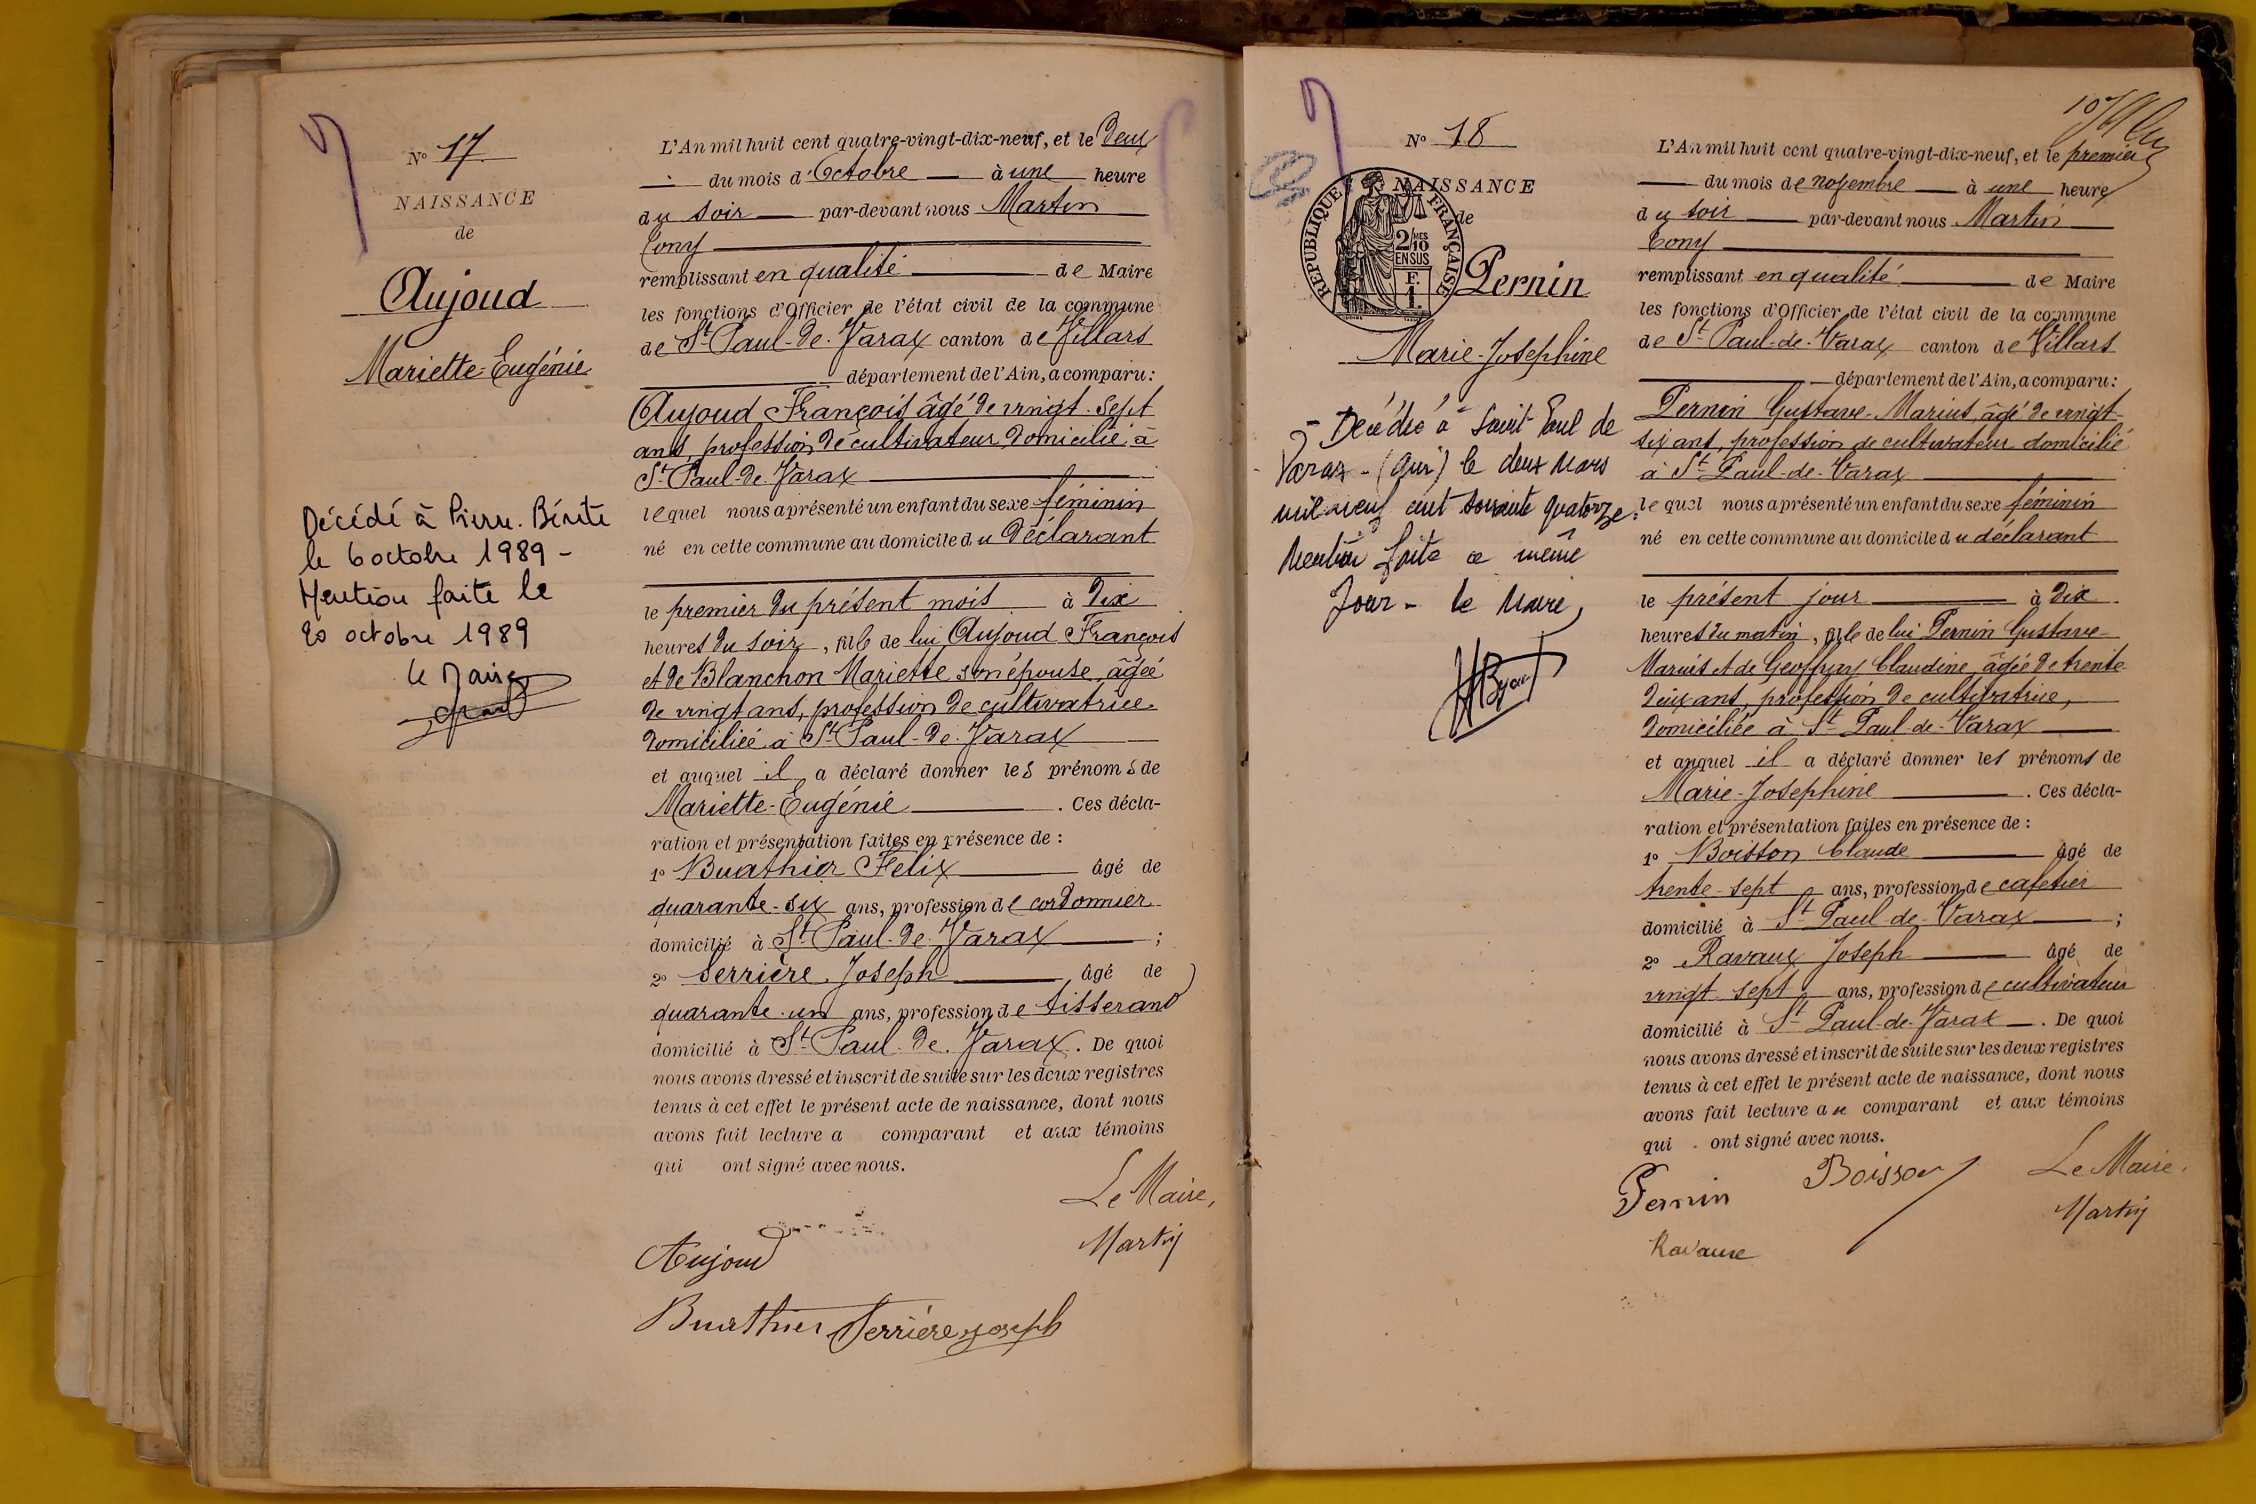 N° 17
NAISSANCE
de
Aujoud
Mariette-Eugénie
Décédé à Pierre-Bénite
le 6 octobre 1989 -
Mention faite le
20 octobre 1989
le Maire
L'An mil huit cent quatre-vingt-dix-neuf, et le Deux
du mois d'Octobre à une heure
du soir par-devant nous Martin
Tony
remplissant en qualité de Maire
les fonctions d'Officier de l'état civil de la commune
de St Paul-de-Varax canton de Villars
département de l'Ain, a comparu :
Aujoud François, âgé de vingt-sept
ans, profession de cultivateur domicilié à
St Paul-de-Varax
lequel nous a présenté un enfant du sexe féminin
né en cette commune au domicile du Déclarant
le premier du présent mois à Dix
heures du soir, fille de lui Aujoud François
et de Blanchon Mariette son épouse, âgée
de vingt ans, profession de cultivatrice
domiciliée à St Paul-de-Varax
et auquel il a déclaré donner les prénoms de
Mariette-Eugénie . Ces décla-
ration et présentation faites en présence de :
1° Buathier Felix âgé de
quarante-six ans, profession de cordonnier
domicilié à St Paul-de-Varax ;
2° Serrière Joseph âgé de
quarante-un ans, profession de tisserand
domicilié à St Paul-de-Varax. De quoi
nous avons dressé et inscrit de suite sur les deux registres
tenus à cet effet le présent acte de naissance, dont nous
avons fait lecture a comparant et aux témoins
qui ont signé avec nous.
Le Maire,
Aujoud Martin
Buathier Serrière Joseph
N° 18
NAISSANCE
de
RÉPUBLIQUE FRANÇAISE
2/10 MES
EN SUS
F.
1.
Pernin
Marie-Josephine
- Décédée à Saint Paul de
Varax - (Ain) le deux Mars
mil neuf cent soixante quatorze.
Mention faite ce même
Jour - le Maire,
L'An mil huit cent quatre-vingt-dix-neuf, et le premier
du mois de novembre à une heure
du soir par-devant nous Martin
Tony
remplissant en qualité de Maire
les fonctions d'Officier de l'état civil de la commune
de St Paul-de-Varax canton de Villars
département de l'Ain, a comparu :
Pernin Gustave-Marius, âgé de vingt-
six ans, profession de cultivateur domicilié
à St Paul-de-Varax
lequel nous a présenté un enfant du sexe féminin
né en cette commune au domicile du déclarant
le présent jour à dix
heures du matin, fille de lui Pernin Gustave-
Marius et de Geoffray Claudine, âgée de trente
deux ans, profession de cultivatrice,
domiciliée à St Paul-de-Varax
et auquel il a déclaré donner les prénoms de
Marie-Josephine . Ces décla-
ration et présentation faites en présence de :
1° Boisson Claude âgé de
trente-sept ans, profession de cafetier
domicilié à St Paul-de-Varax ;
2° Ravaux Joseph âgé de
vingt-sept ans, profession de cultivateur
domicilié à St Paul-de-Varax . De quoi
nous avons dressé et inscrit de suite sur les deux registres
tenus à cet effet le présent acte de naissance, dont nous
avons fait lecture au comparant et aux témoins
qui ont signé avec nous.
Pernin Boisson Le Maire,
Ravaux Martin